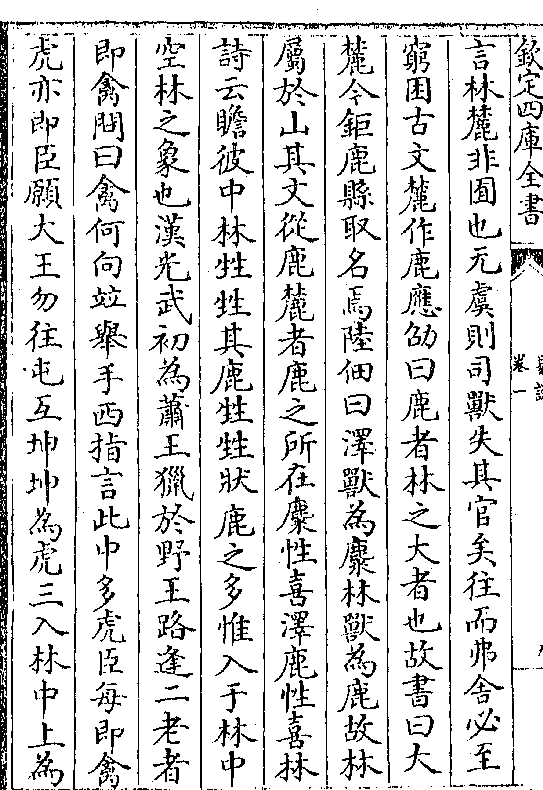 欽定四庫全書
卷一
言林麓非囿也无虞則司獸失其官矣往而弗舍必至
窮困古文麓作鹿應劭曰鹿者林之大者也故書曰大
麓今鉅鹿縣取名焉陸佃曰澤獸為麋林獸為鹿故林
屬於山其文從鹿麓者鹿之所在麋性喜澤鹿性喜林
詩云瞻彼中林甡甡其鹿甡甡狀鹿之多惟入于林中
空林之象也漢光武初為蕭王獵於野王路逢二老者
即禽問曰禽何向竝舉手西指言此中多虎臣每即禽
虎亦即臣願大王勿往屯互坤坤為虎三入林中上為